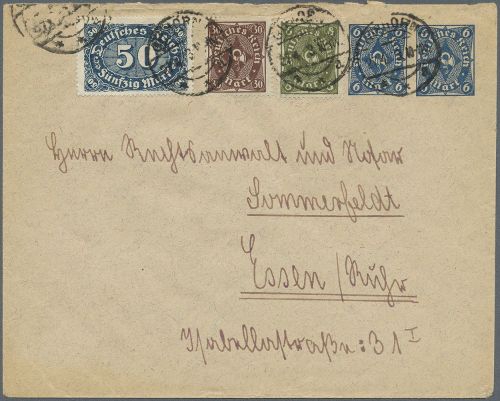 Deutsches Reich 50 Fünfzig Mark
Deutsches Reich 30 Mark
8
6 Deutsches Reich 6 Mark
6 Deutsches Reich 6 Mark
Herrn Rechtsanwalt und Notar
Sommerfeldt
Essen/Ruhr
Isabellastraße: 31 I